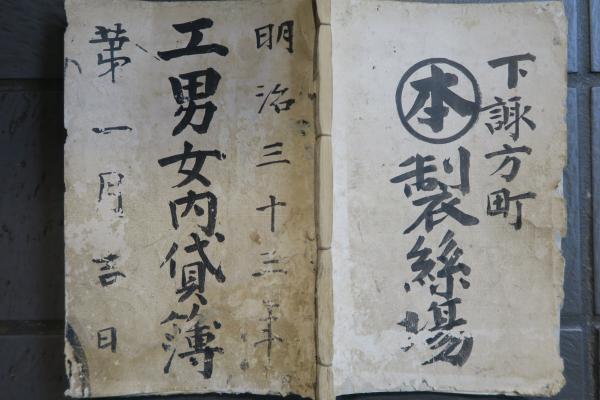 下諏方町
本製絲場
明治三十三年
工男女内貸簿
第一月吉日